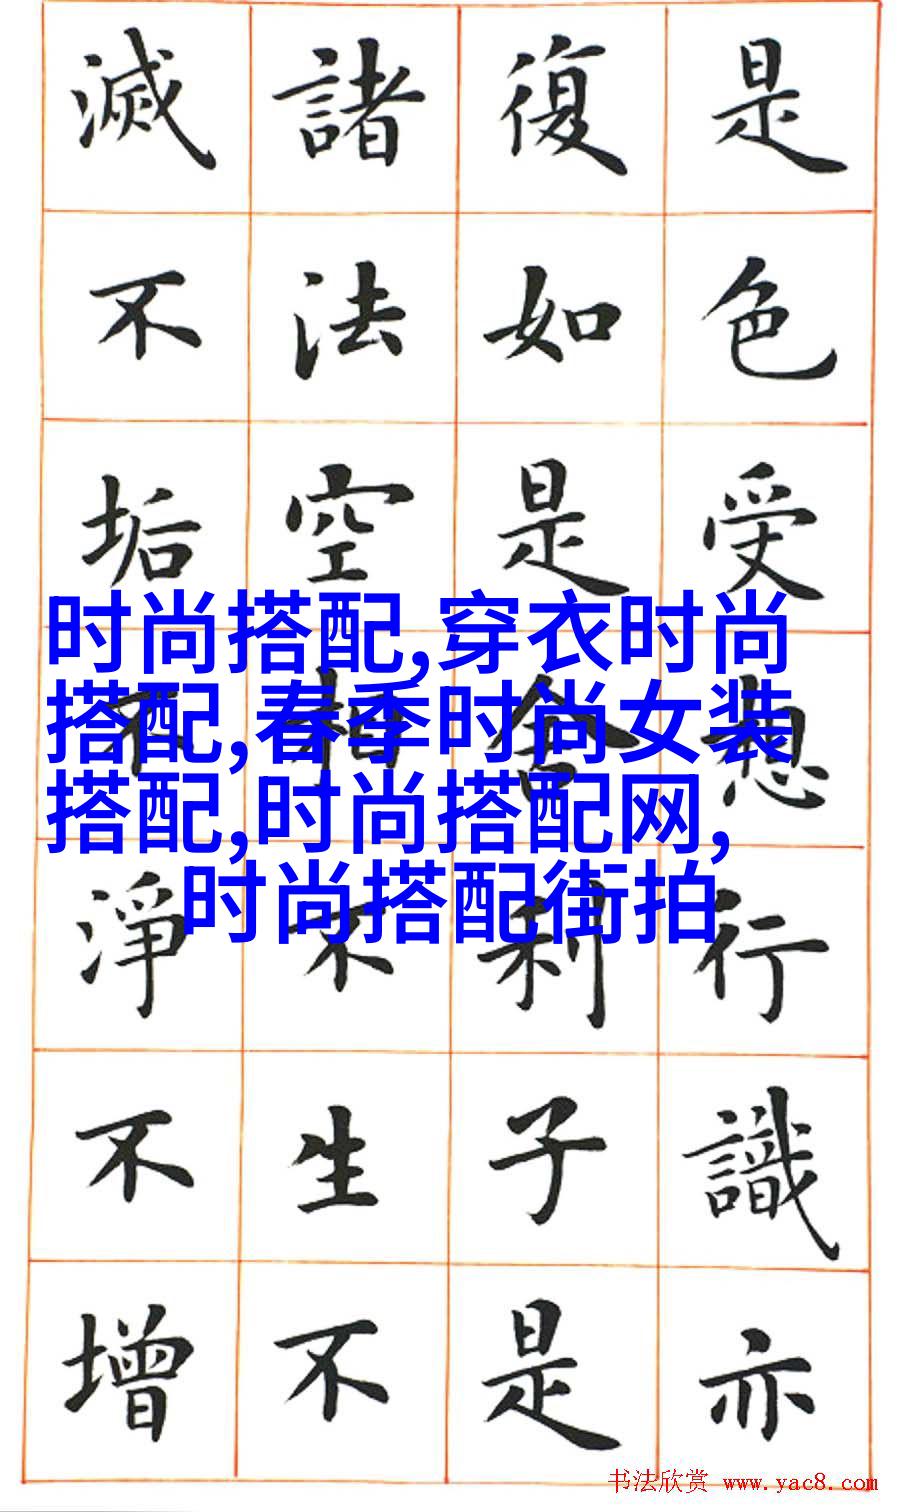 是色受想行識亦
復如是舍利子是
諸法空相不生不
滅不垢不淨不增
时尚搭配,穿衣时尚
搭配,春季时尚女装
搭配,时尚搭配网,
时尚搭配街拍
书法欣赏 www.yac8.com